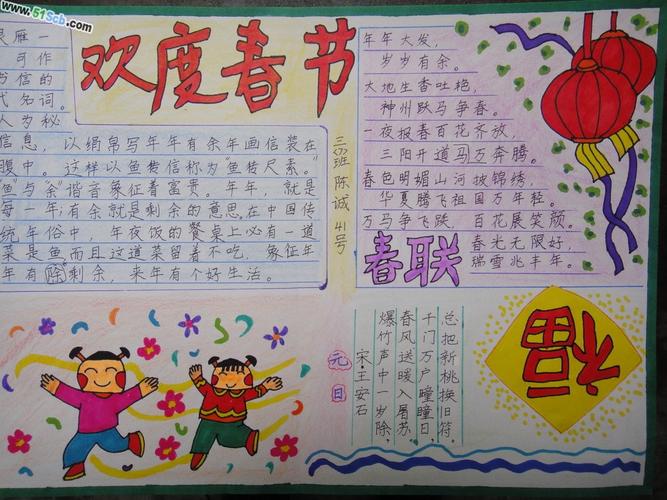 www.51Scb.com
欢度春节
雁一
可作
书信的
代名词。
人为秘
信息，以绢帛写年年有余年画信装在
腹中。这样以鱼传信称为"鱼传尺素"。
鱼"与"余"谐音象征着富贵。年年，就是
每一年；有余就是剩余的意思，在中国传
统年俗中，年夜饭的餐桌上必有一道
菜是鱼而且这道菜留着不吃，象征年
年有除"剩余，来年有个好生活。
三班陈诚41号
年年大发，
岁岁有余。
大地生香吐艳，
神州跃马争春。
一夜报春百花齐放，
三阳开道马万奔腾。
春色明媚山河披锦绣，
华夏腾飞祖国万年轻。
万马争飞跃，百花展笑颜。
春联
春光无限好，
瑞雪兆丰年。
元日
宋·王安石
爆竹声中一岁除，
春风送暖入屠苏。
千门万户曈曈日，
总把新桃换旧符。
福